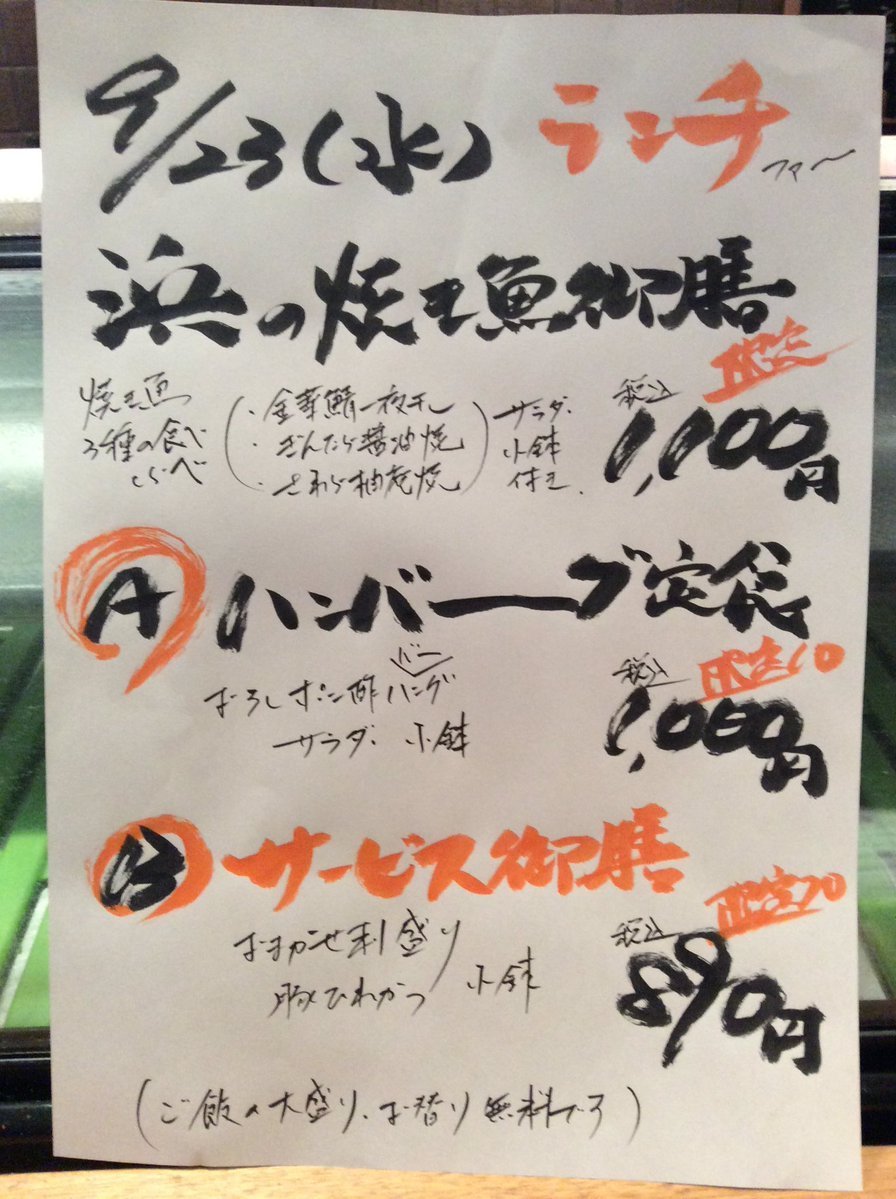 9/23(水) ランチ
ファ〜
浜の焼き魚御膳
限定
焼き魚
3種の食べ
くらべ
・金華鯖一夜干し
・ぎんだら醤油焼
・さわら柚庵焼
サラダ
小鉢
付き
税込
1,100円
A ハンバーグ定食
限定10
おろしポン酢ハンバーグ
サラダ 小鉢
税込
1,000円
B サービス御膳
限定20
おまかせ刺盛り
豚ひれかつ 小鉢
税込
890円
(ご飯の大盛り、お替り無料です)